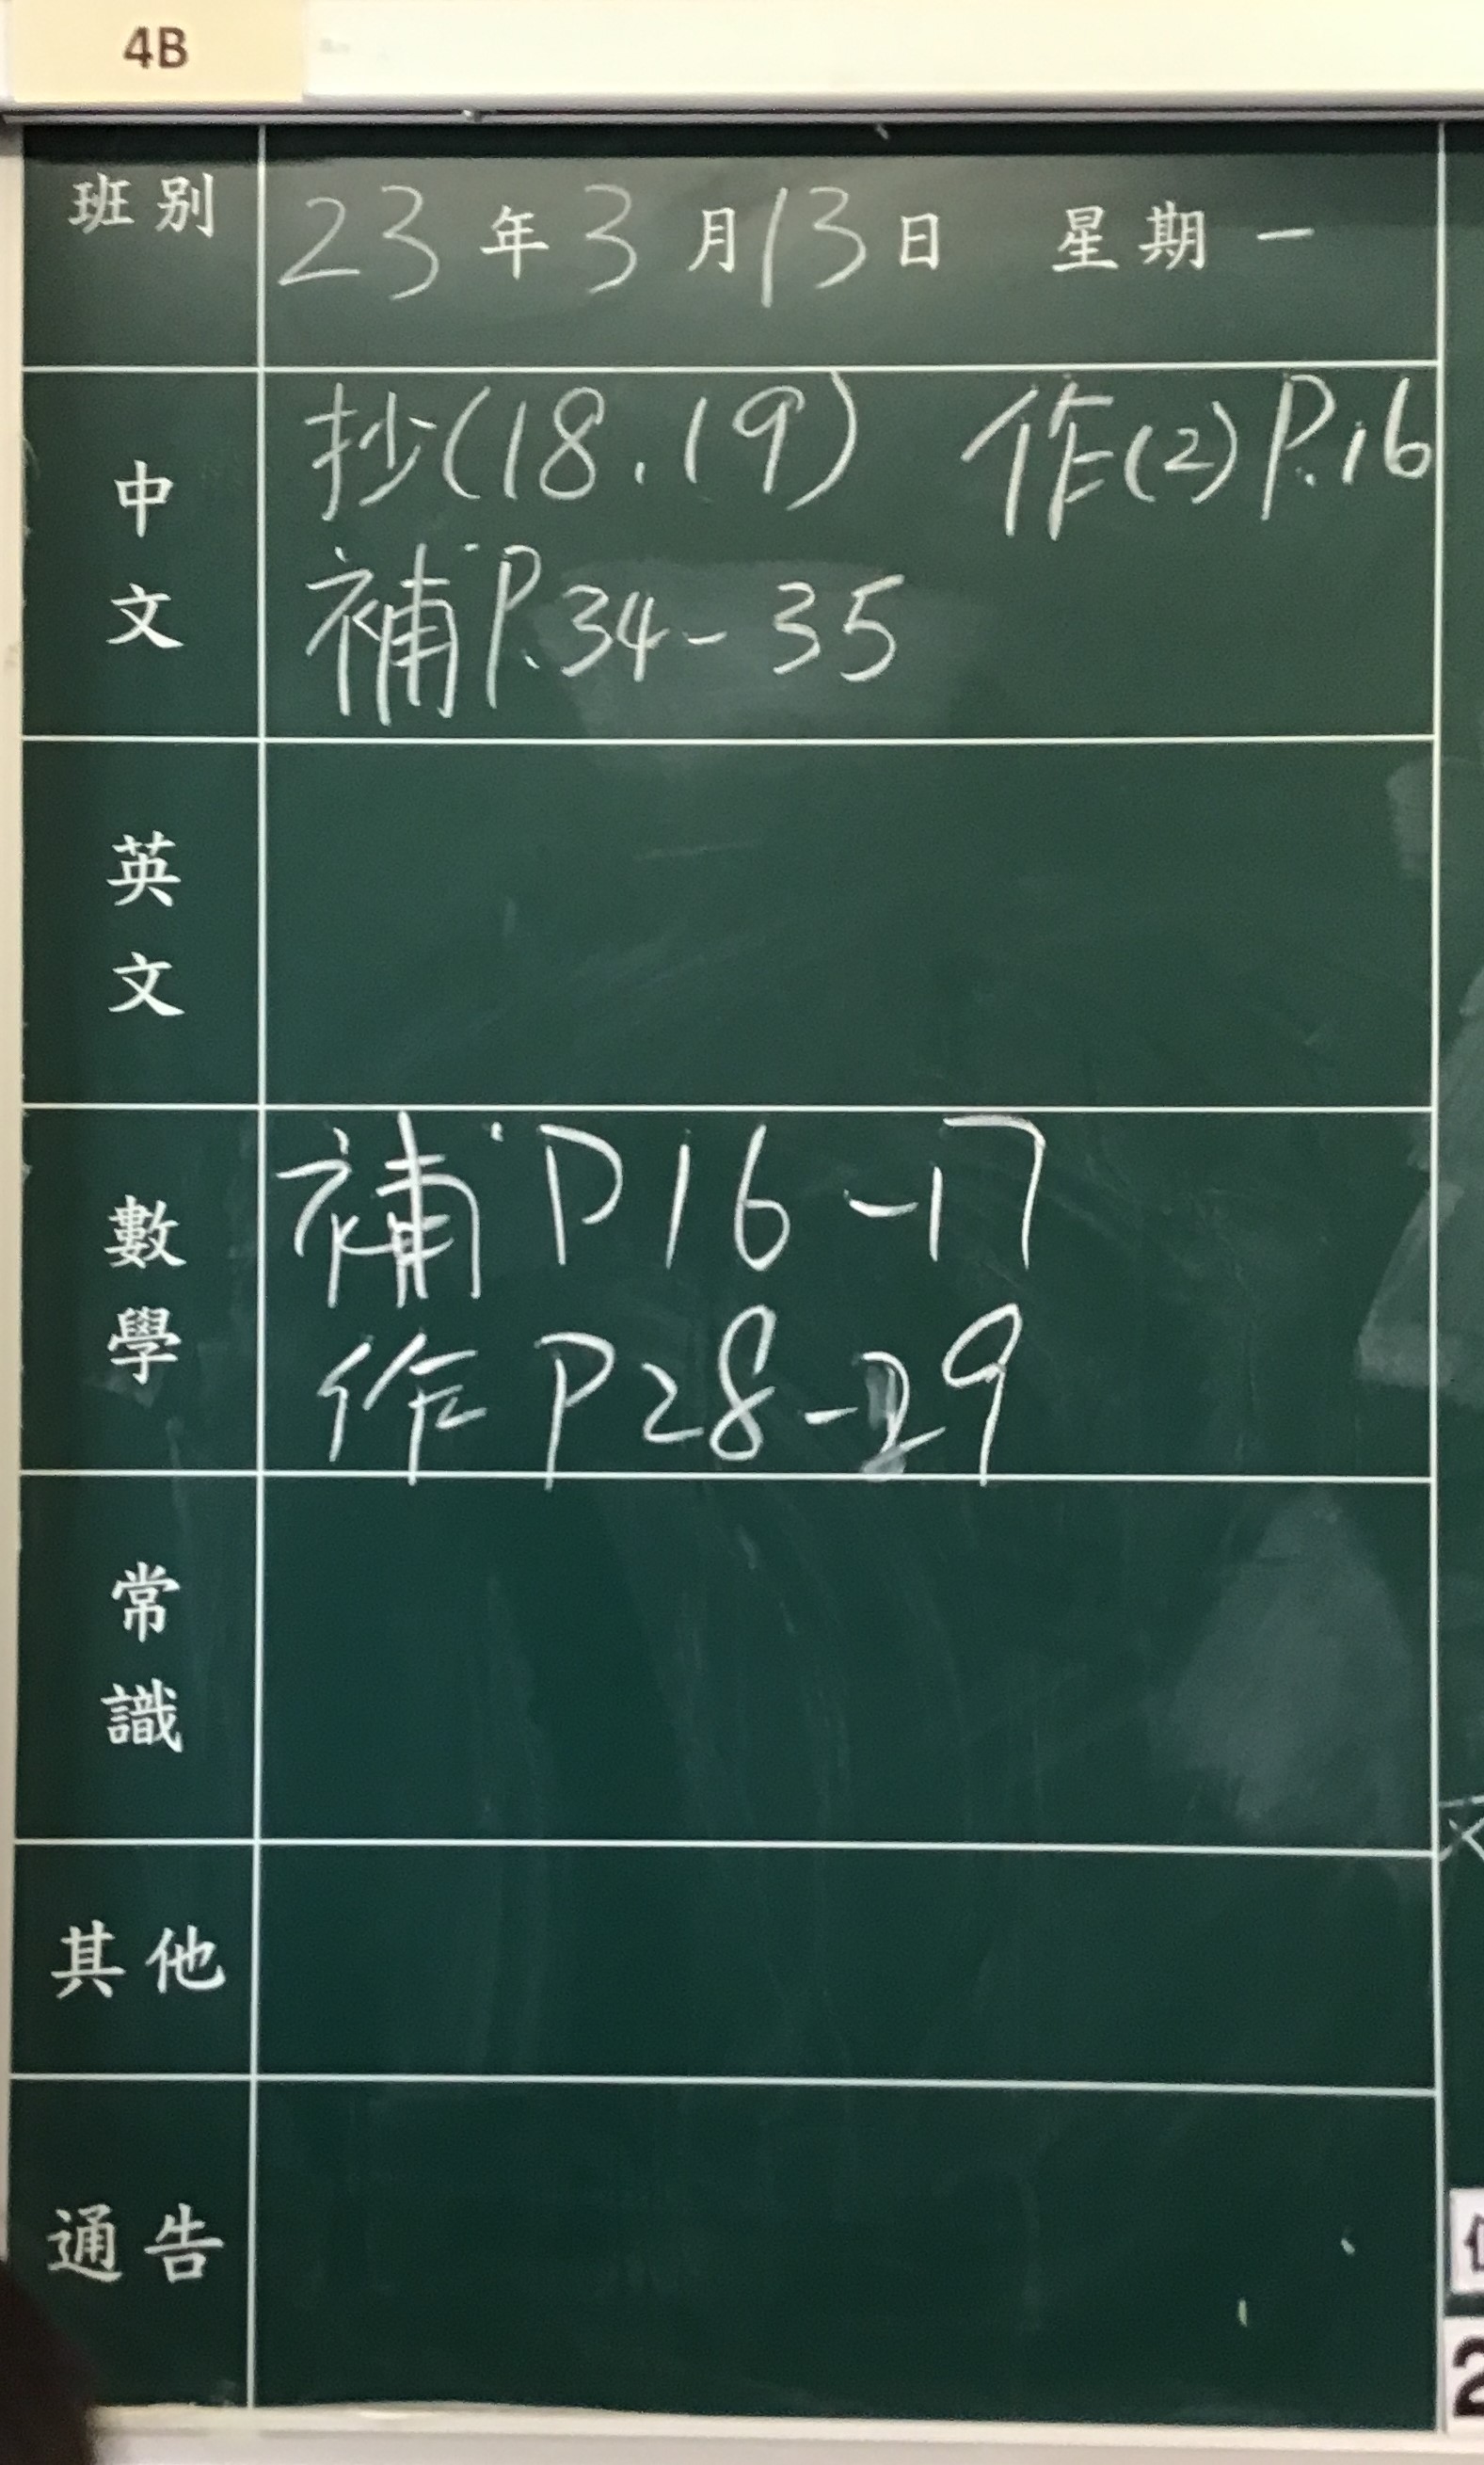 4B
班別 23年3月13日 星期一
中文 抄(18.19) 作(2)P.16
補P.34-35
英文
數學 補P16-17
作P28-29
常識
其他
通告
2